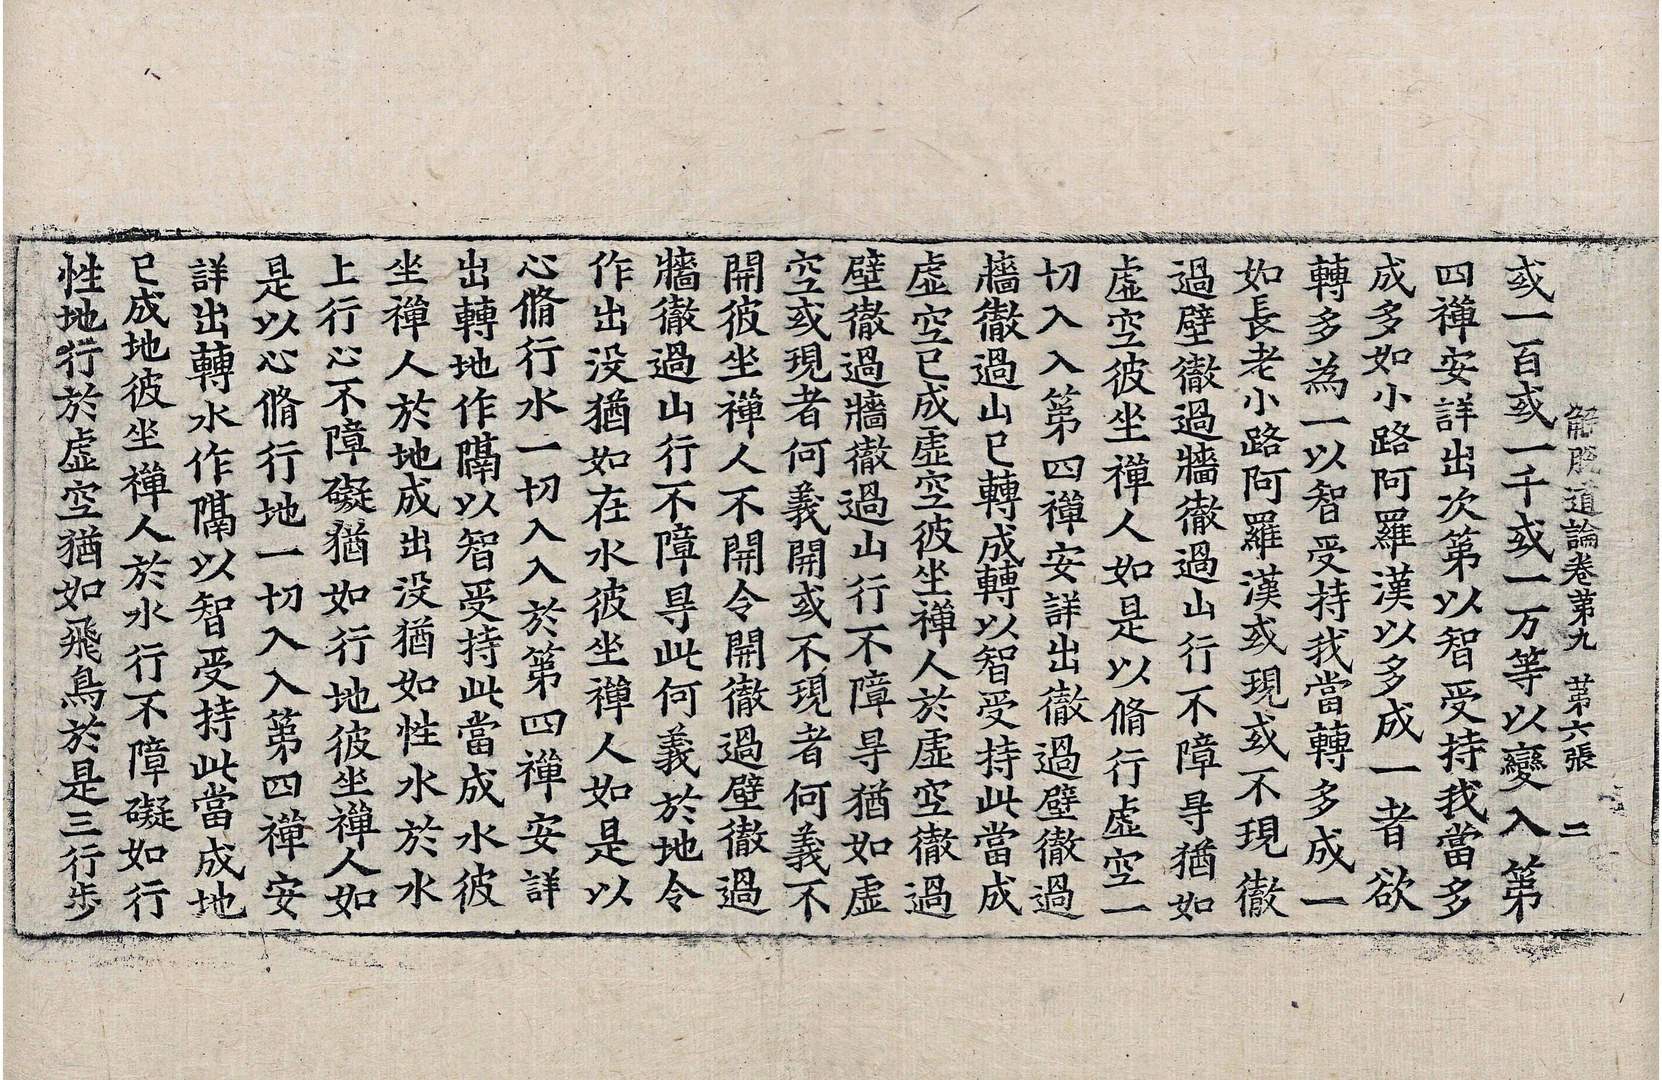 解脫道論卷第九　第六張　二
或一百或一千或一万等以變入第
四禪安詳出次第以智受持我當多
成多如小路阿羅漢以多成一者欲
轉多為一以智受持我當轉多成一
如長老小路阿羅漢或現或不現徹
過壁徹過牆徹過山行不障㝵猶如
虛空彼坐禪人如是以脩行虛空一
切入入第四禪安詳出徹過壁徹過
牆徹過山已轉成轉以智受持此當成
虛空已成虛空彼坐禪人於虛空徹過
壁徹過牆徹過山行不障㝵猶如虛
空或現者何義開或不現者何義不
開彼坐禪人不開令開徹過壁徹過
牆徹過山行不障㝵此何義於地令
作出没猶如在水彼坐禪人如是以
心脩行水一切入入於第四禪安詳
出轉地作隔以智受持此當成水彼
坐禪人於地成出没猶如性水於水
上行心不障礙猶如行地彼坐禪人如
是以心脩行地一切入入第四禪安
詳出轉水作隔以智受持此當成地
已成地彼坐禪人於水行不障礙如行
性地行於虛空猶如飛鳥於是三行步